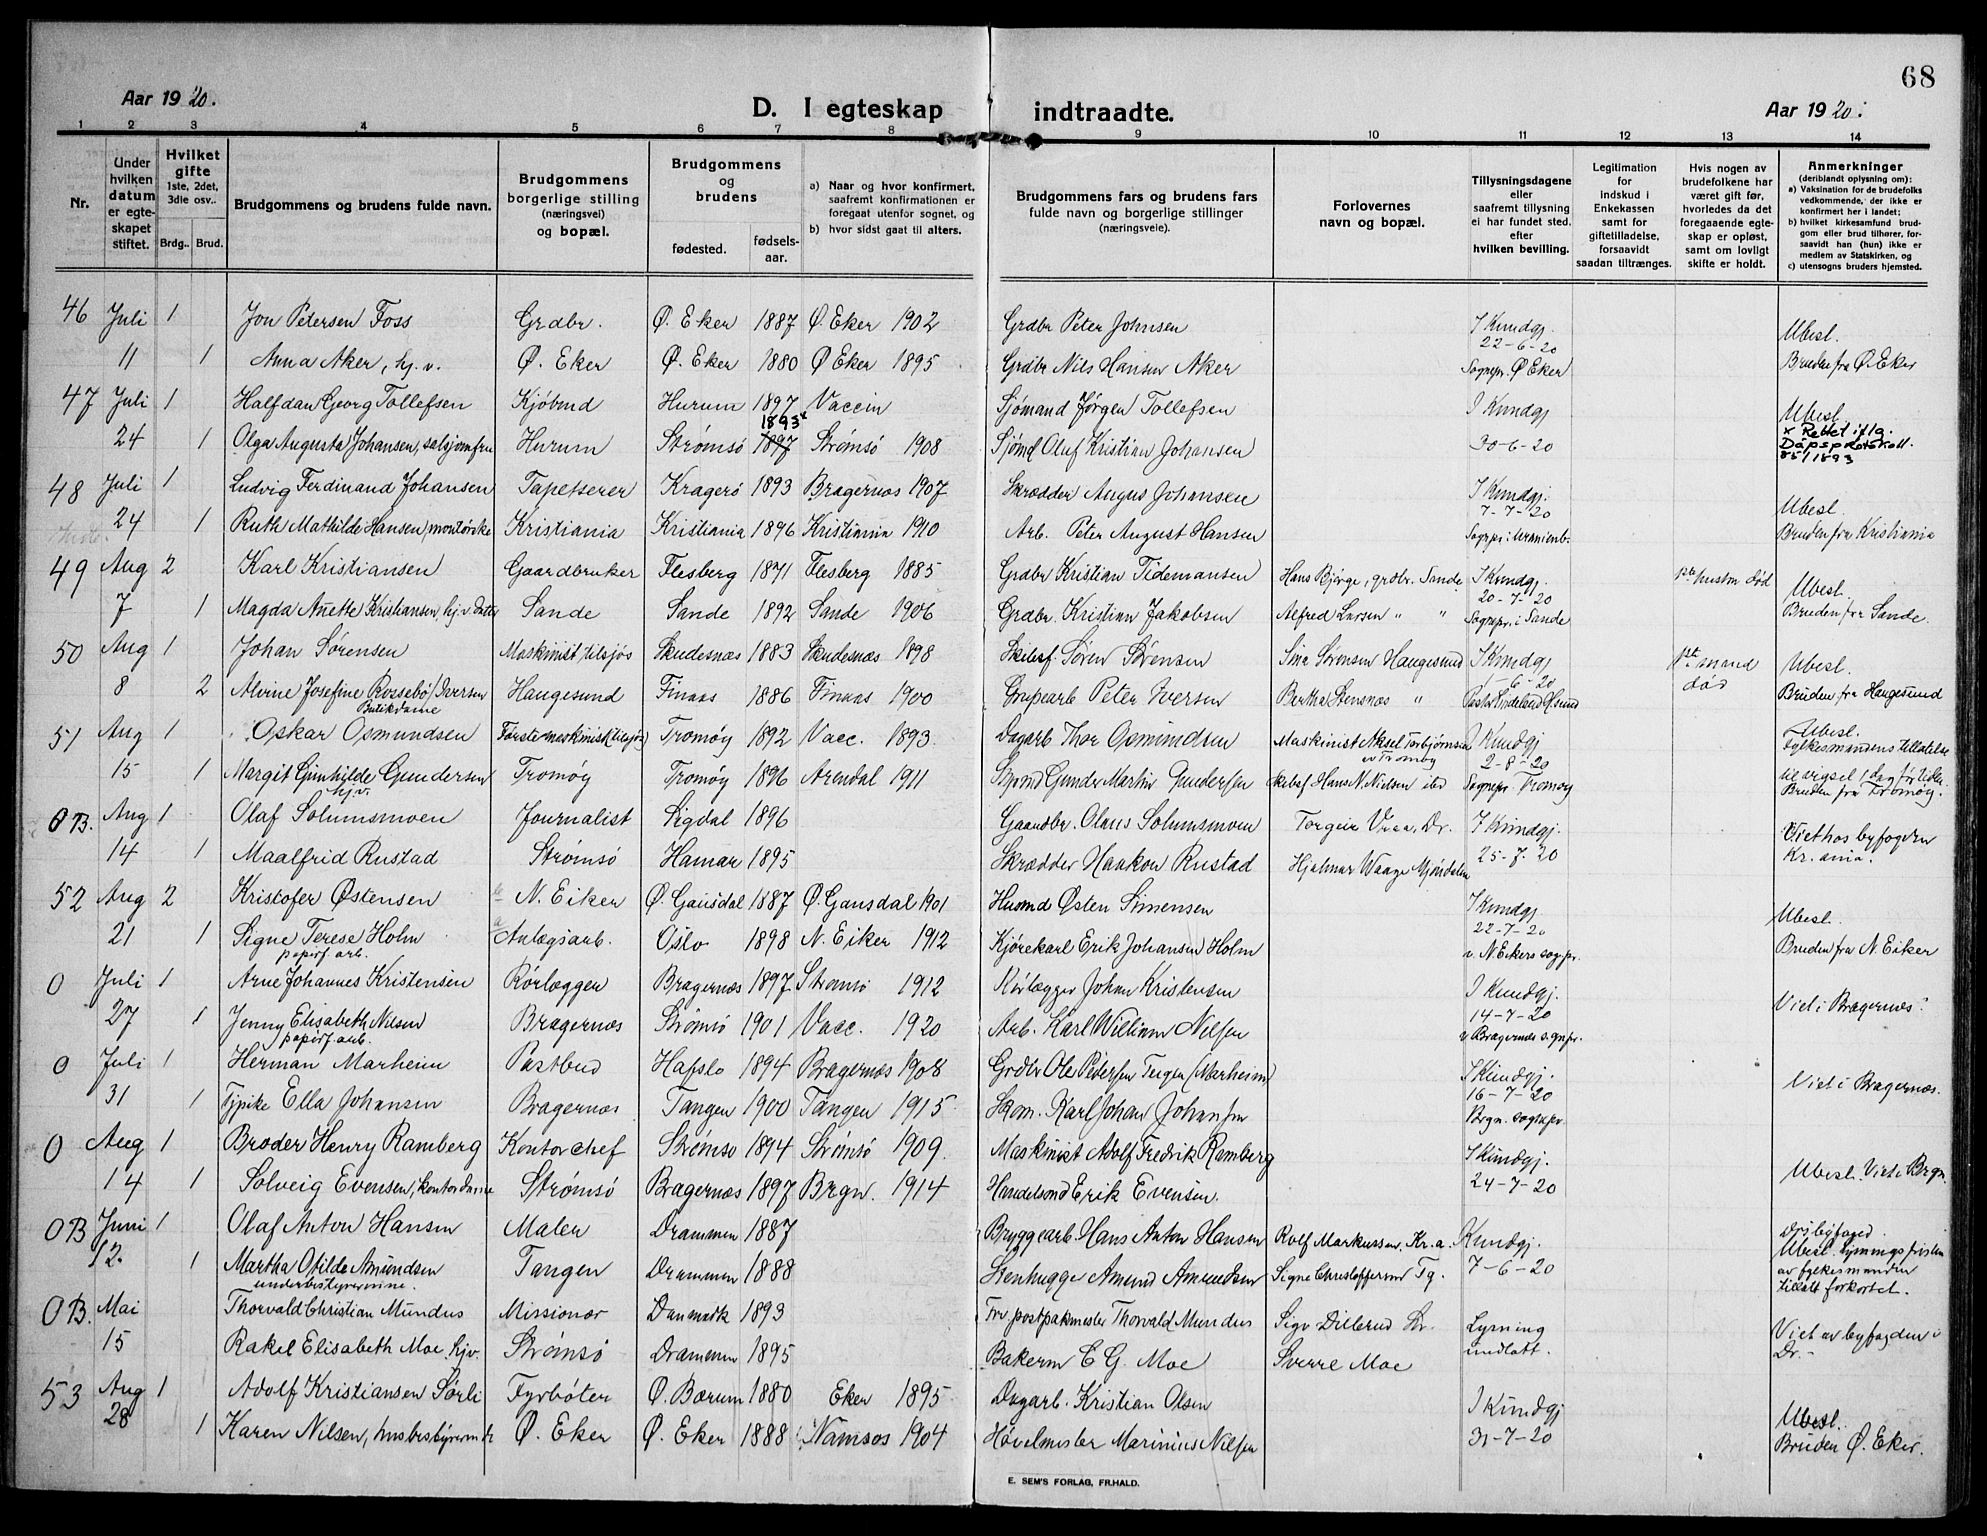 68
Aar 1920.
D. I egteskap indtraadte.
Aar 1920.
1 2 3 4 5 6 7 8 9 10 11 12 13 14
Nr.
Under hvilken datum er egteskapet stiftet.
Hvilket gifte 1ste, 2det, 3die osv..
Brdg.. Brud.
Brudgommens og brudens fulde navn.
Brudgommens borgerlige stilling (næringsvei) og bopæl.
Brudgommens og brudens
fødested.
fødselsaar.
a) Naar og hvor konfirmert, saafremt konfirmationen er foregaat utenfor sognet, og
b) hvor sidst gaat til alters.
Brudgommens fars og brudens fars fulde navn og borgerlige stillinger (næringsveie).
Forlovernes navn og bopæl.
Tillysningsdagene eller saafremt tillysning ei har fundet sted, efter hvilken bevilling.
Legitimation for indskud i Enkekassen samt for giftetilladelse, forsaavidt saadan tiltrænges.
Hvis nogen av brudefolkene har været gift før, hvorledes da det foregaaende egteskap er opløst, samt om lovligt skifte er holdt.
Anmerkninger (deriblandt oplysning om):
a) Vaksination for de brudefolks vedkommende, der ikke er konfirmert her i landet;
b) hvilket kirkesamfund brudgom eller brud tilhører, forsaavidt han (hun) ikke er medlem av Statskirken, og
c) utensogns bruders hjemsted.
46 Juli 1 Jon Petersen Foss Grdbr. Ø. Eker 1887 Ø. Eker 1902 Grdbr Peter Johnsen I Kundgj. 22-6-20 Ubesl.
11 1 Anna Aker, hj. v. Ø. Eker Ø. Eker 1880 Ø Eker 1895 Grdbr Nils Hansen Aker Sognepr. Ø Eker Bruden fra Ø. Eker
47 Juli 1 Halfdan Georg Tollefsen Kjøbmd Hurum 1897 Vaccin Sjømand Jørgen Tollefsen I Kundgj Ubesl.
24 1 Olga Augusta Johansen, salsjomfru Hurum Strømsö 1893x 1897 Strømsö 1908 Sjømd Oluf Kristian Johansen 30-6-20 x Rettet iflg. Dåpsprotokoll. 85/1893
48 Juli 1 Ludvig Ferdinand Johansen Tapetserer Kragerö 1893 Bragernæs 1907 Skrædder August Johansen I Kundgj. 7-7-20 Ubesl.
24 1 Ruth Mathilde Hansen, montørske Kristiania Kristiania 1896 Kristiania 1910 Arb. Peter August Hansen Sognepr. i Uranienb. Bruden fra Kristiania
49 Aug 2 Karl Kristiansen Gaardbruker Flesberg 1871 Flesberg 1885 Grdbr Kristian Tidemansen Hans Bjørge, grdbr. Sande I Kundgj. 20-7-20 hustru död Ubesl.
7 1 Magda Anette Kristiansen, hj. v. datter Sande Sande 1892 Sande 1906 Grdbr. Kristian Jakobsen Alfred Larsen " " Sognepr. i Sande Bruden fra Sande.
50 Aug 1 Johan Sørensen Maskinist tilsjös Skudesnæs 1883 Skudesnæs 1898 Skibsf. Søren Sørensen Sina Sørensen Haugesund I Kundgj 1-6-20 mand död Ubesl.
8 2 Alvine Josefine Rossebö/Iversen Butikdame Haugesund Finaas 1886 Finaas 1900 Grupearb Peter Iversen Bertha Stensnæs " Bruden fra Haugesund
51 Aug 1 Oskar Osmundsen Førstemaskinist (tilsjös) Tromöy 1892 Vacc. 1893 Dagarb Thor Osmundsen Maskinist Aksel Torbjørnsen I Kundgj 2-8-20 Ubesl. Fylkesmandens tilladelse
15 1 Margit Gunhilde Gundersen hj.v. Tromöy Tromöy 1896 Arendal 1911 Gunder Martin Gundersen Skibsf Hans N. Nielsen Sognepr. Tromöy til vigsel 1 dag før tiden. Bruden fra Tromöy.
OB. Aug 1 Olaf Solumsmoen Journalist Sigdal 1896 Gaardbr. Olaus Solumsmoen Torgeir Vraa, Dr. I Kundgj. Viet hos byfogden
14 1 Maalfrid Rustad Strömsö Hamar 1895 Skrædder Haakon Rustad Hjalmar Waage Mjöndalen 25-7-20 Kr.ania.
52 Aug 2 Kristofer Østensen N. Eiker Ø. Gausdal 1887 Ø. Gausdal 1901 Husmd Østen Simensen I Kundgj 22-7-20 Ubesl.
21 1 Signe Terese Holm papirf. arb. Anlægsarb. Oslo 1898 N. Eiker 1912 Kjørekarl Erik Johansen Holm v. N. Eikers sognepr. Bruden fra N. Eiker
0 Juli 1 Arne Johannes Kristensen Rörlægger Bragernæs 1897 Strömsö 1912 Rörlægger Johan Kristensen I Kundgj. 14-7-20 Viet i Bragernæs.
27 1 Jenny Elisabeth Nilsen papirf. arb. Bragernæs Strömsö 1901 Vacc. 1920 Arb. Karl William Nilsen v Bragernæs sognepr.
0 Juli 1 Herman Marheim Postbud Hafslo 1894 Bragernæs 1908 Grdbr Ole Pedersen Teigen (Marheim) I Kundgj. 16-7-20 Viet i Bragernæs.
31 1 Typike Ella Johansen Bragernæs Tangen 1900 Tangen 1915 Skom. Karl Johan Johansen Brgn. sognepr
0 Aug 1 Broder Henry Ramberg Kontorchef Strömsö 1894 Strömsö 1909. Maskinist Adolf Fredrik Ramberg I Kundgj. Ubesl. Viet i Brgn.
14 1 Solveig Evensen, kontordame Strömsö Bragernæs 1897 Brgn. 1914 Handelsmd Erik Evensen. 24-7-20
OB Juni 1 Olaf Anton Hansen Maler Drammen 1887 Bryggearb Hans Anton Hansen Rolf Markussen, Kr.a. Kundgj. Drs byfoged. Ubesl. Lysningsfristen
12. 1 Martha Otilde Amundsen underbestyrerinne. Tangen Drammen 1888 Stenhugge Amund Amundsen Signe Christoffersen Tg. 7-6-20 av fylkesmanden tillatt forkortet.
OB. Mai Thorvald Christian Mundus Missionær Danmark 1893 Frv postpakmester Thorvald Mundus Sigv Dillerud Dr. Lysning undlatt. Viet av byfogden i
15 Rakel Elisabeth Moe, hjv. Strömsö Drammen 1895 Bakerm E G. Moe Sverre Moe Dr.
53 Aug 1 Adolf Kristiansen Sörli Fyrböter Ø. Bærum 1880 Eker 1895 Dagarb. Kristian Olsen I Kundgj Ubesl.
28 1 Karen Nilsen, husbestyrerinde Ø. Eker Ø. Eker 1888 Namsos 1904 Hövelmester Marinius Nilsen 31-7-20 Bruden Ø. Eker.
E. SEM'S FORLAG, FR.HALD.